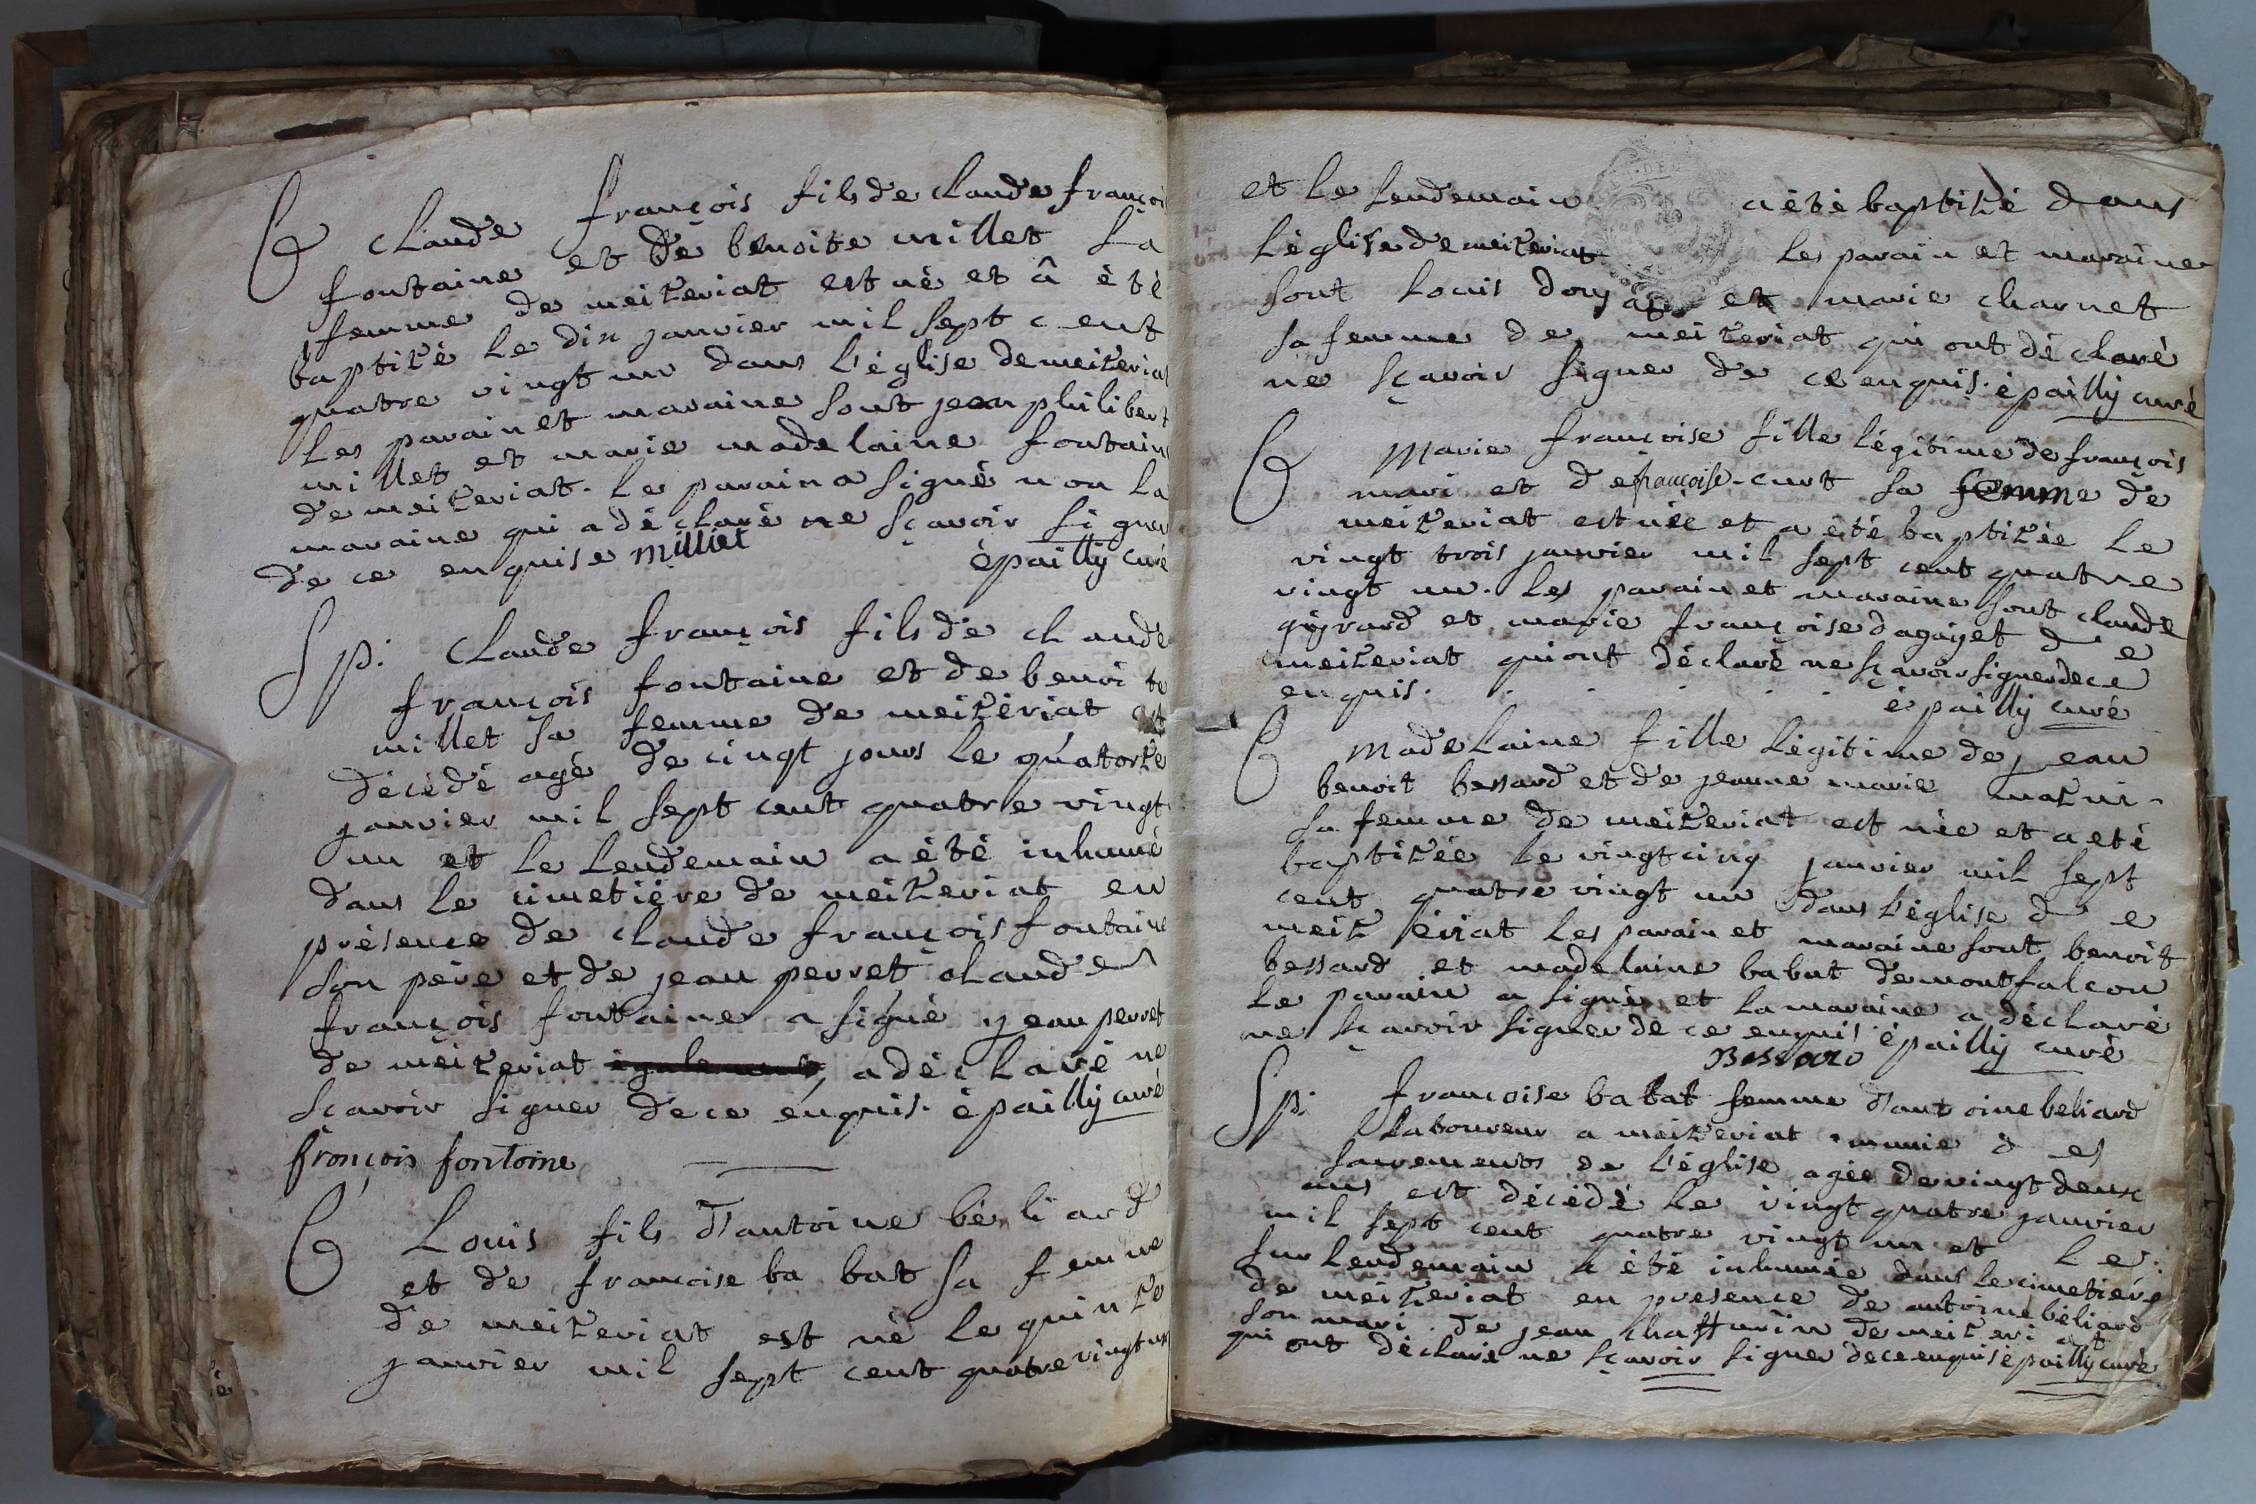 B Claude françois fils de claude françoi
fontaine et de benoite millet sa
femme de meizeriat est né et â été
baptizé le dix janvier mil sept cent
quatre vingt un dans l'église de meizeriat
les parain et maraine sont jean philibert
millet et marie madelaine fontaine
de meizeriat. le parain a signé non la
maraine qui a déclaré ne sçavoir signer
de ce enquise Milliet épailly curé
Sp. Claude françois fils de claude
françois fontaine et de benoite
millet sa femme de meizériat est
décédé agé de cinqt jours le quatorze
janvier mil sept cent quatre vingt
un et le lendemain a été inhumé
dans le cimetiére de meizeriat en
présence de claude françois fontaine
son pére et de jean perret claude
françois fontaine a signé jean perret
de meizeriat également, a déclaré ne
sçavoir signer de ce enquis. épailly curé
françois fontoine
B Louis fils d'antoine béliard
et de francoise babat sa femme
de meizeriat est né le quinze
janvier mil sept cent quatre vingt un
et le lendemain a été baptizé dans
l'église de meizeriat les parain et maraine
sont louis et marie charnet
sa femme de meizeriat qui ont déclaré
ne sçavoir signer de ce enquis. épailly curé
B Marie françoise fille légitime de françois
mari et de françoise curt sa femme de
meizeriat est née et a été baptizée le
vingt trois janvier mil sept cent quatre
vingt un. les parain et maraine sont claude
et marie françoise dagaiyet de
meizeriat qui ont déclaré ne sçavoir signer de ce
enquis. épailly curé
B Madelaine fille légitime de jean
benoit bessard et de jeanne marie
sa femme de meizeriat est née et a eté
baptizée le vingt cinq janvier mil sept
cent quatre vingt un dans l'église de
meizériat les parain et maraine sont benoit
bessard et madelaine babat de montfalcon
le parain a signé et la maraine a déclaré
ne sçavoir signer de ce enquis épailly curé
Bessard
Sp. francoise babat femme d'antoine béliard
laboureur a meizeriat munie des
sacrements de l'église agée de vingt deux
ans est décédé le vingt quatre janvier
mil sept cent quatre vingt un et le
surlendemain a été inhumée dans le cimetiére
de meizeriat en présence de antoine béliard
son mari de jean de meizeriat
qui ont déclaré ne sçavoir signer de ce enquis épailly curé